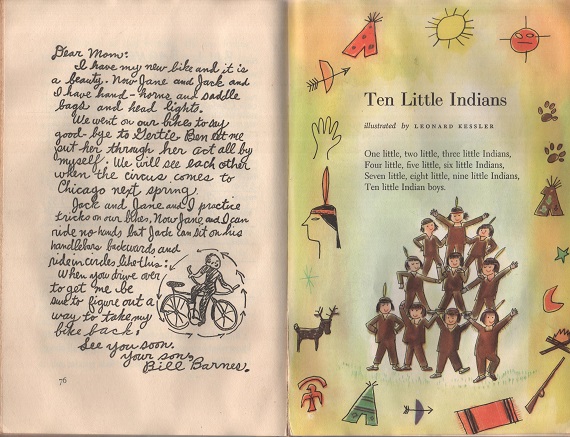 Dear Mom:
I have my new bike and it is
a beauty. Now Jane and Jack and
I have hand-horns and saddle
bags and head lights.
We went on our bikes to say
good-bye to Gertie. Ben let me
put her through her act all by
myself. We will see each other
when the circus comes to
Chicago next spring.
Jack and Jane and I practice
tricks on our bikes. Now Jane and I can
ride no hands but Jack can sit on his
handlebars backwards and
ride in circles like this:
When you drive over
to get me be
sure to figure out a
way to take my
bike back.
See you soon.
Your son,
Bill Barnes.
76
Ten Little Indians
illustrated by LEONARD KESSLER
One little, two little, three little Indians,
Four little, five little, six little Indians,
Seven little, eight little, nine little Indians,
Ten little Indian boys.